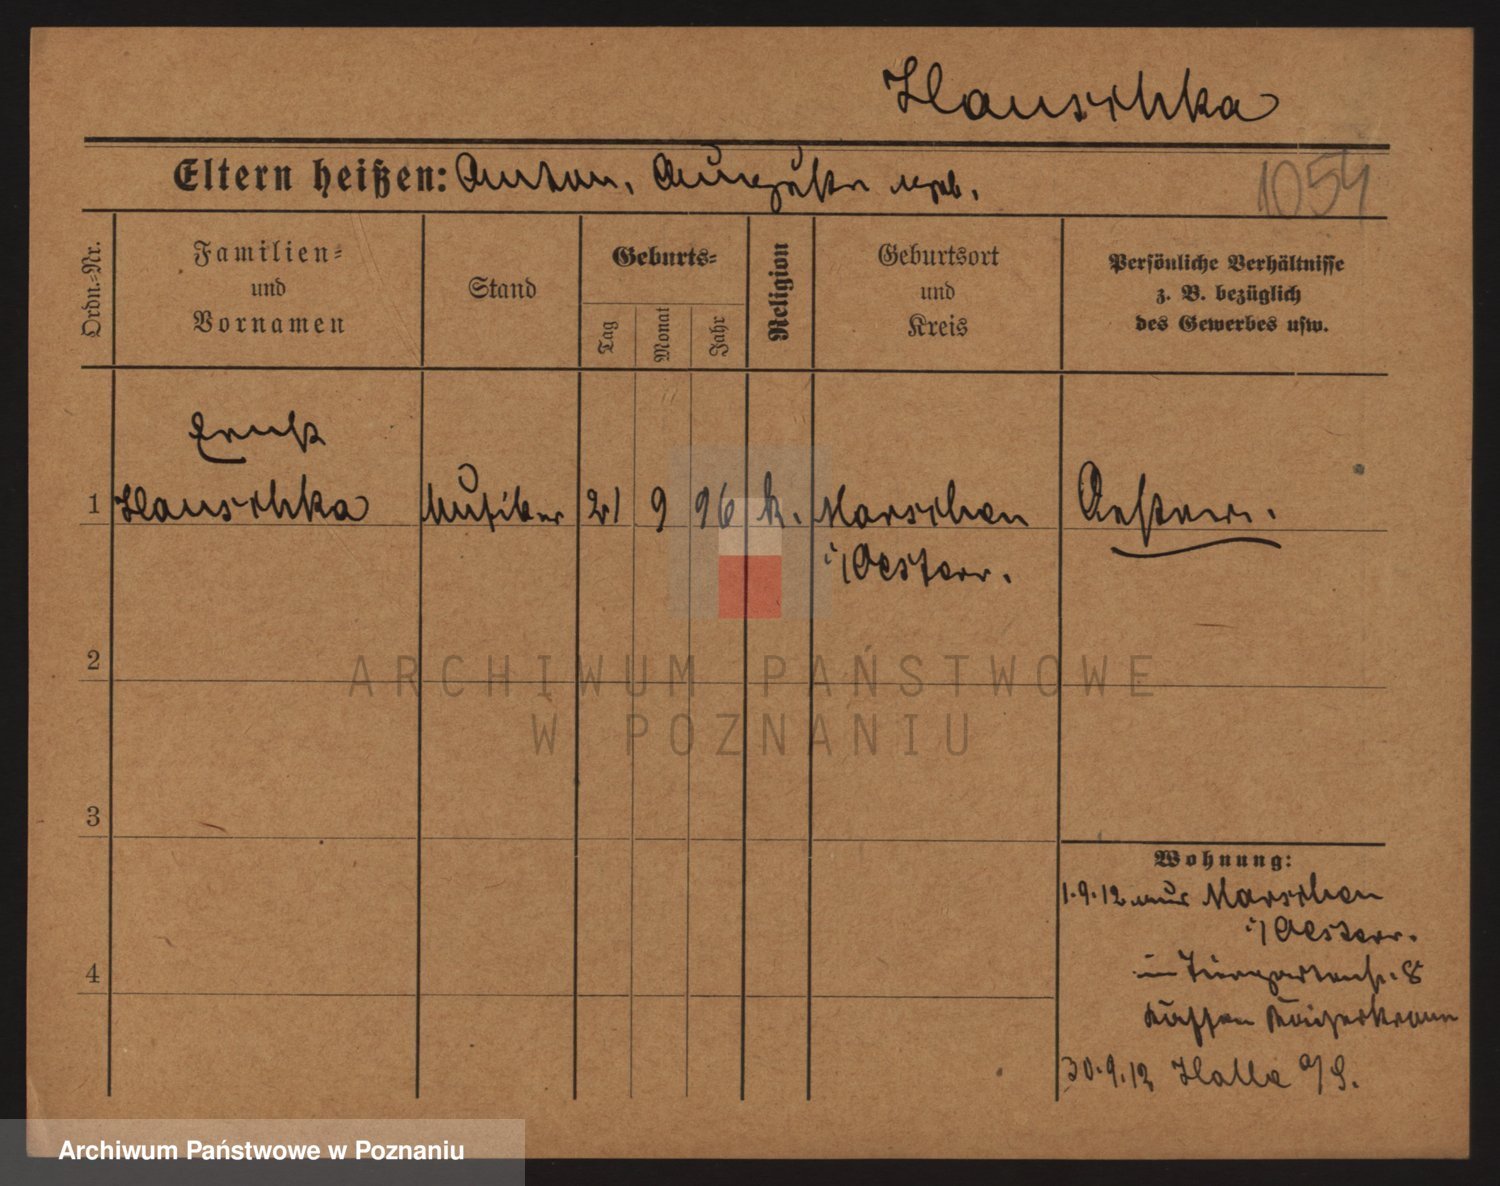 Hauschka
Eltern heißen: Anton, Auguste
1054
Ordn.-Nr.
Familien-
und
Vornamen
Stand
Geburts-
Tag
Monat
Jahr
Religion
Geburtsort
und
Kreis
Persönliche Verhältnisse
z. B. bezüglich
des Gewerbes usw.
Ernst
1 Hauschka Musiker 21 9 96 k. Marschen Oesterr.
i/Oesterr.
2
ARCHIWUM PAŃSTWOWE
W POZNANIU
3
4
Wohnung:
1.9.12 aus Marschen
i/Oesterr.
in Tiergartenstr. 8
Kaiserkrone
30.9.12 Halle a/S.
Archiwum Państwowe w Poznaniu